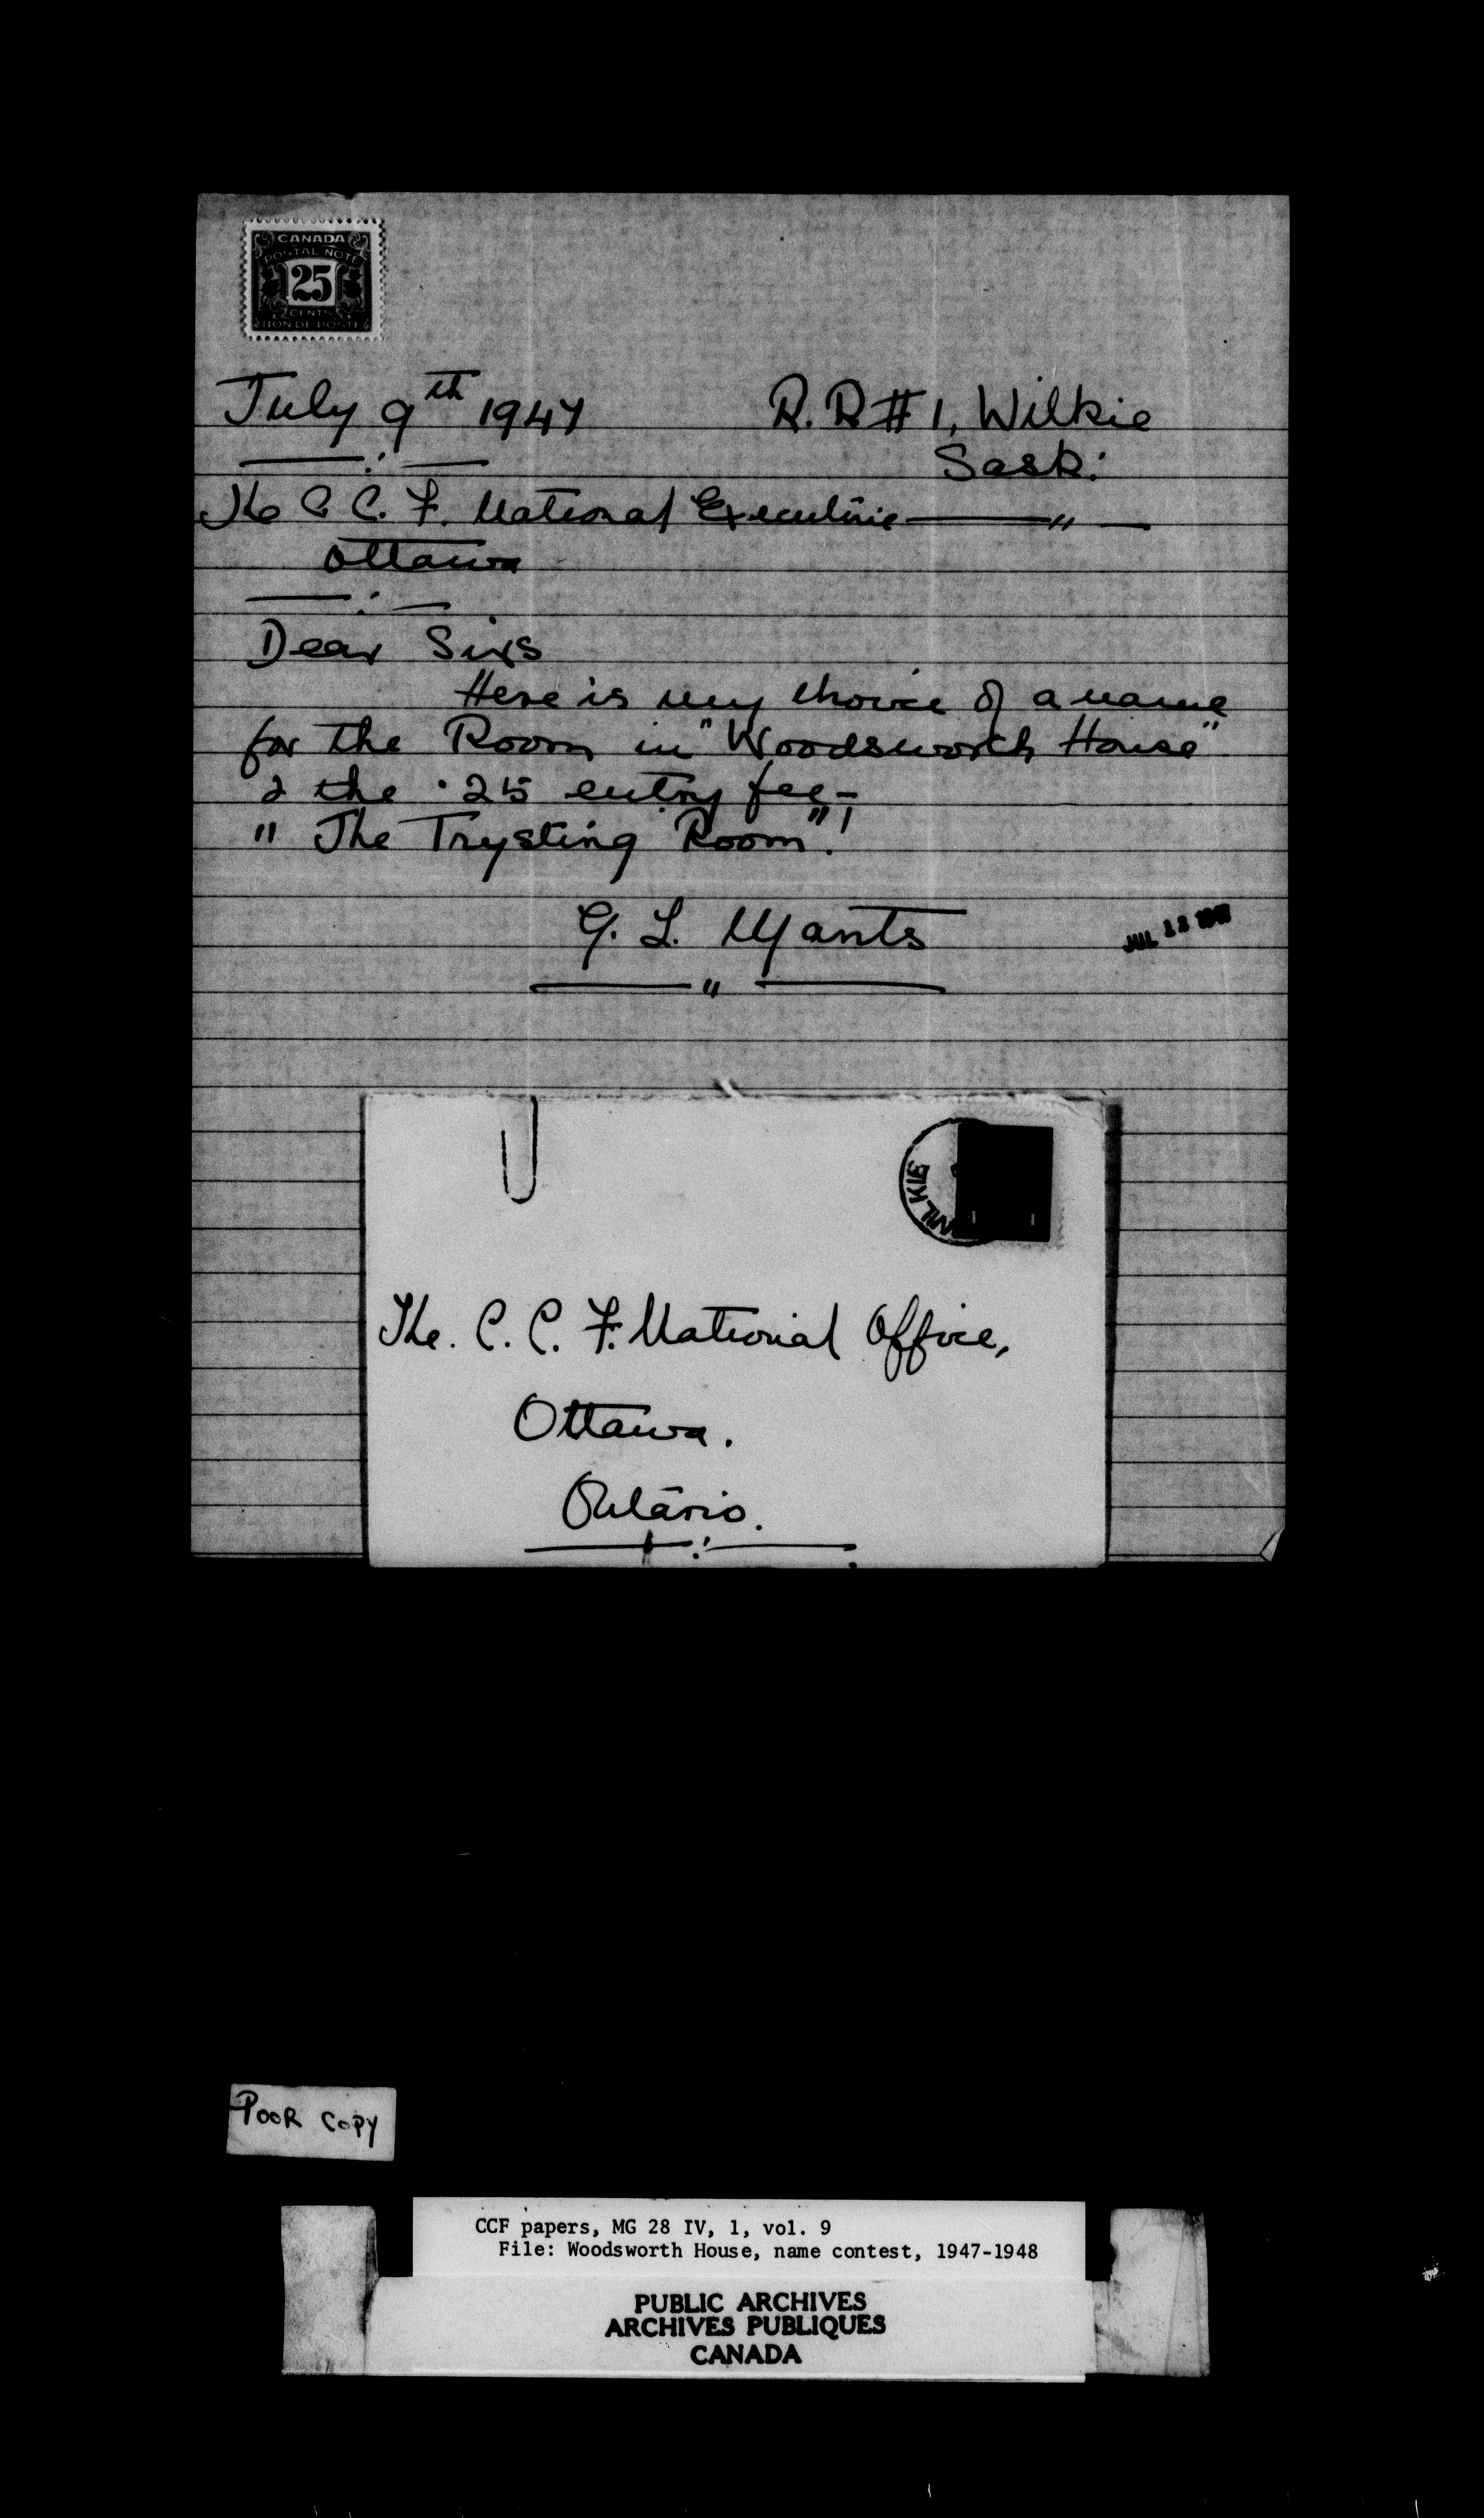 CANADA
POSTAL NOTE
25
CENTS
BON DE POSTE
July 9th 1947 R.R #1, Wilkie
Sask:
The C. C. F. National Executive
Ottawa
Dear Sirs
Here is my choice of a name
for the Room in "Woodsworth House"
& the .25 entry fee -
"The Trysting Room"!
G. L.
JUL 12 1947
WILKIE
The. C. C. F. National Office,
Ottawa.
Ontario.
POOR COPY
CCF papers, MG 28 IV, 1, vol. 9
File: Woodsworth House, name contest, 1947-1948
PUBLIC ARCHIVES
ARCHIVES PUBLIQUES
CANADA